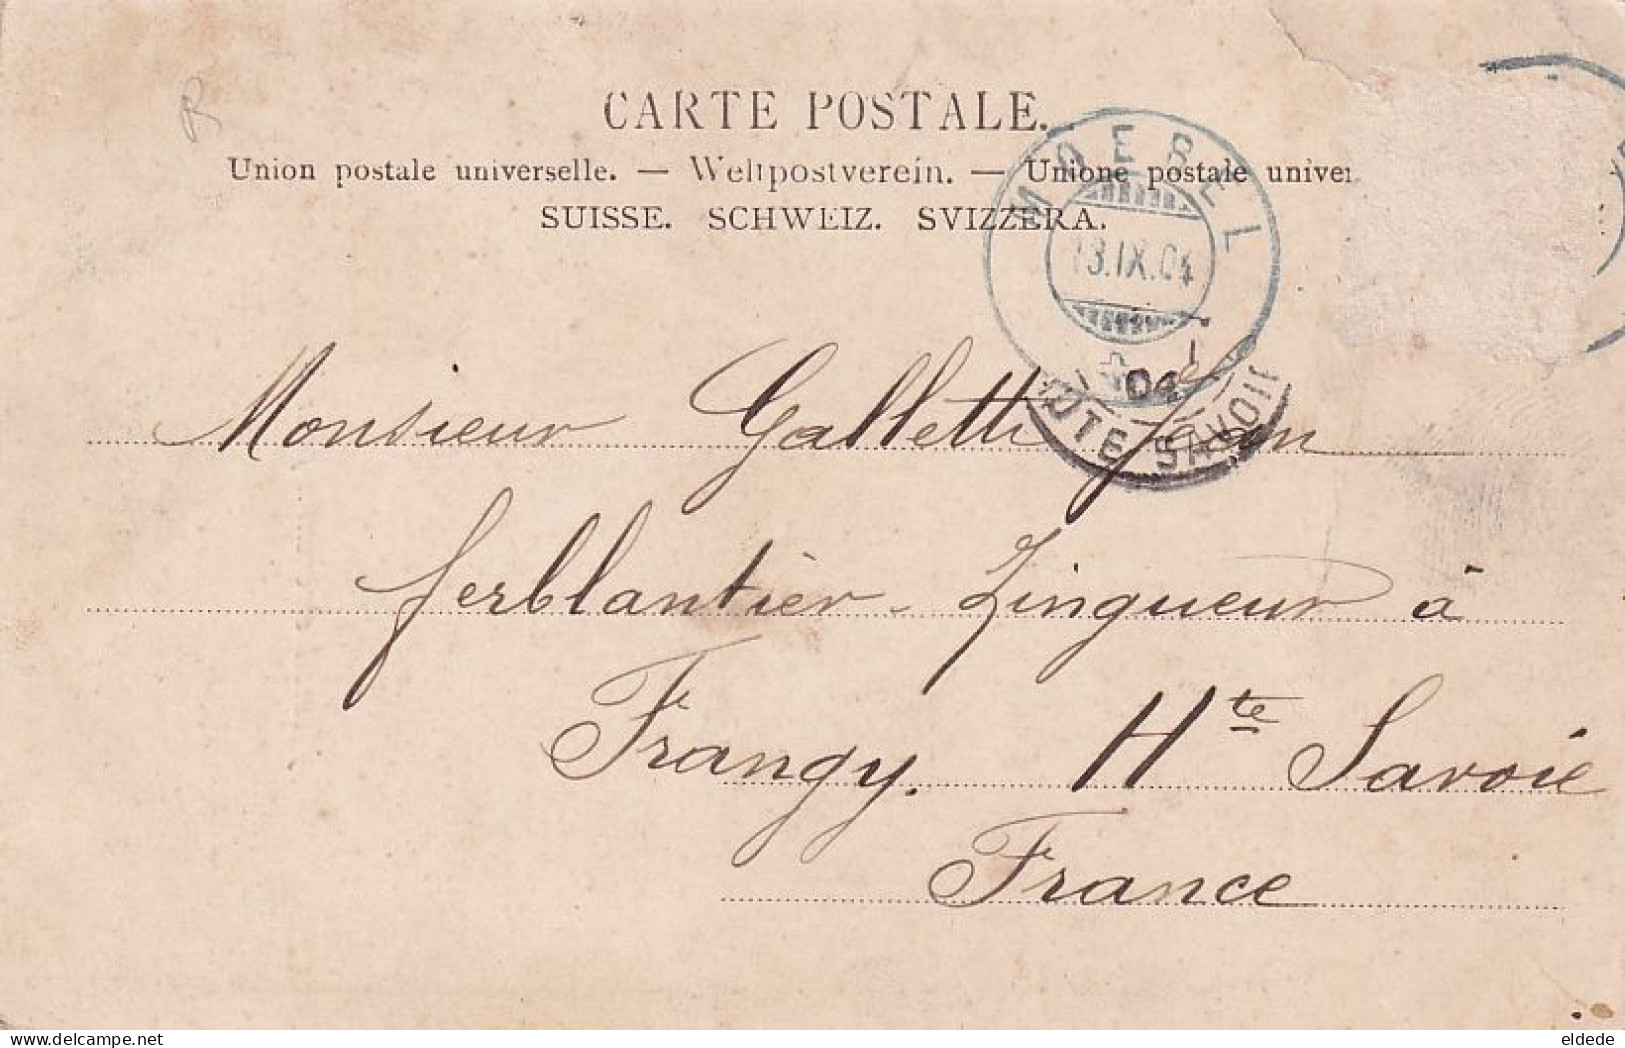 CARTE POSTALE.
Union postale universelle. — Weltpostverein. — Unione postale univer
SUISSE. SCHWEIZ. SVIZZERA.
MOEREL
13.IX.04
04
UTE-SAVOIE
Monsieur Galletti Jean
ferblantier-Zingueur à
Frangy. Hte Savoie
France
eldede
delcampe.net